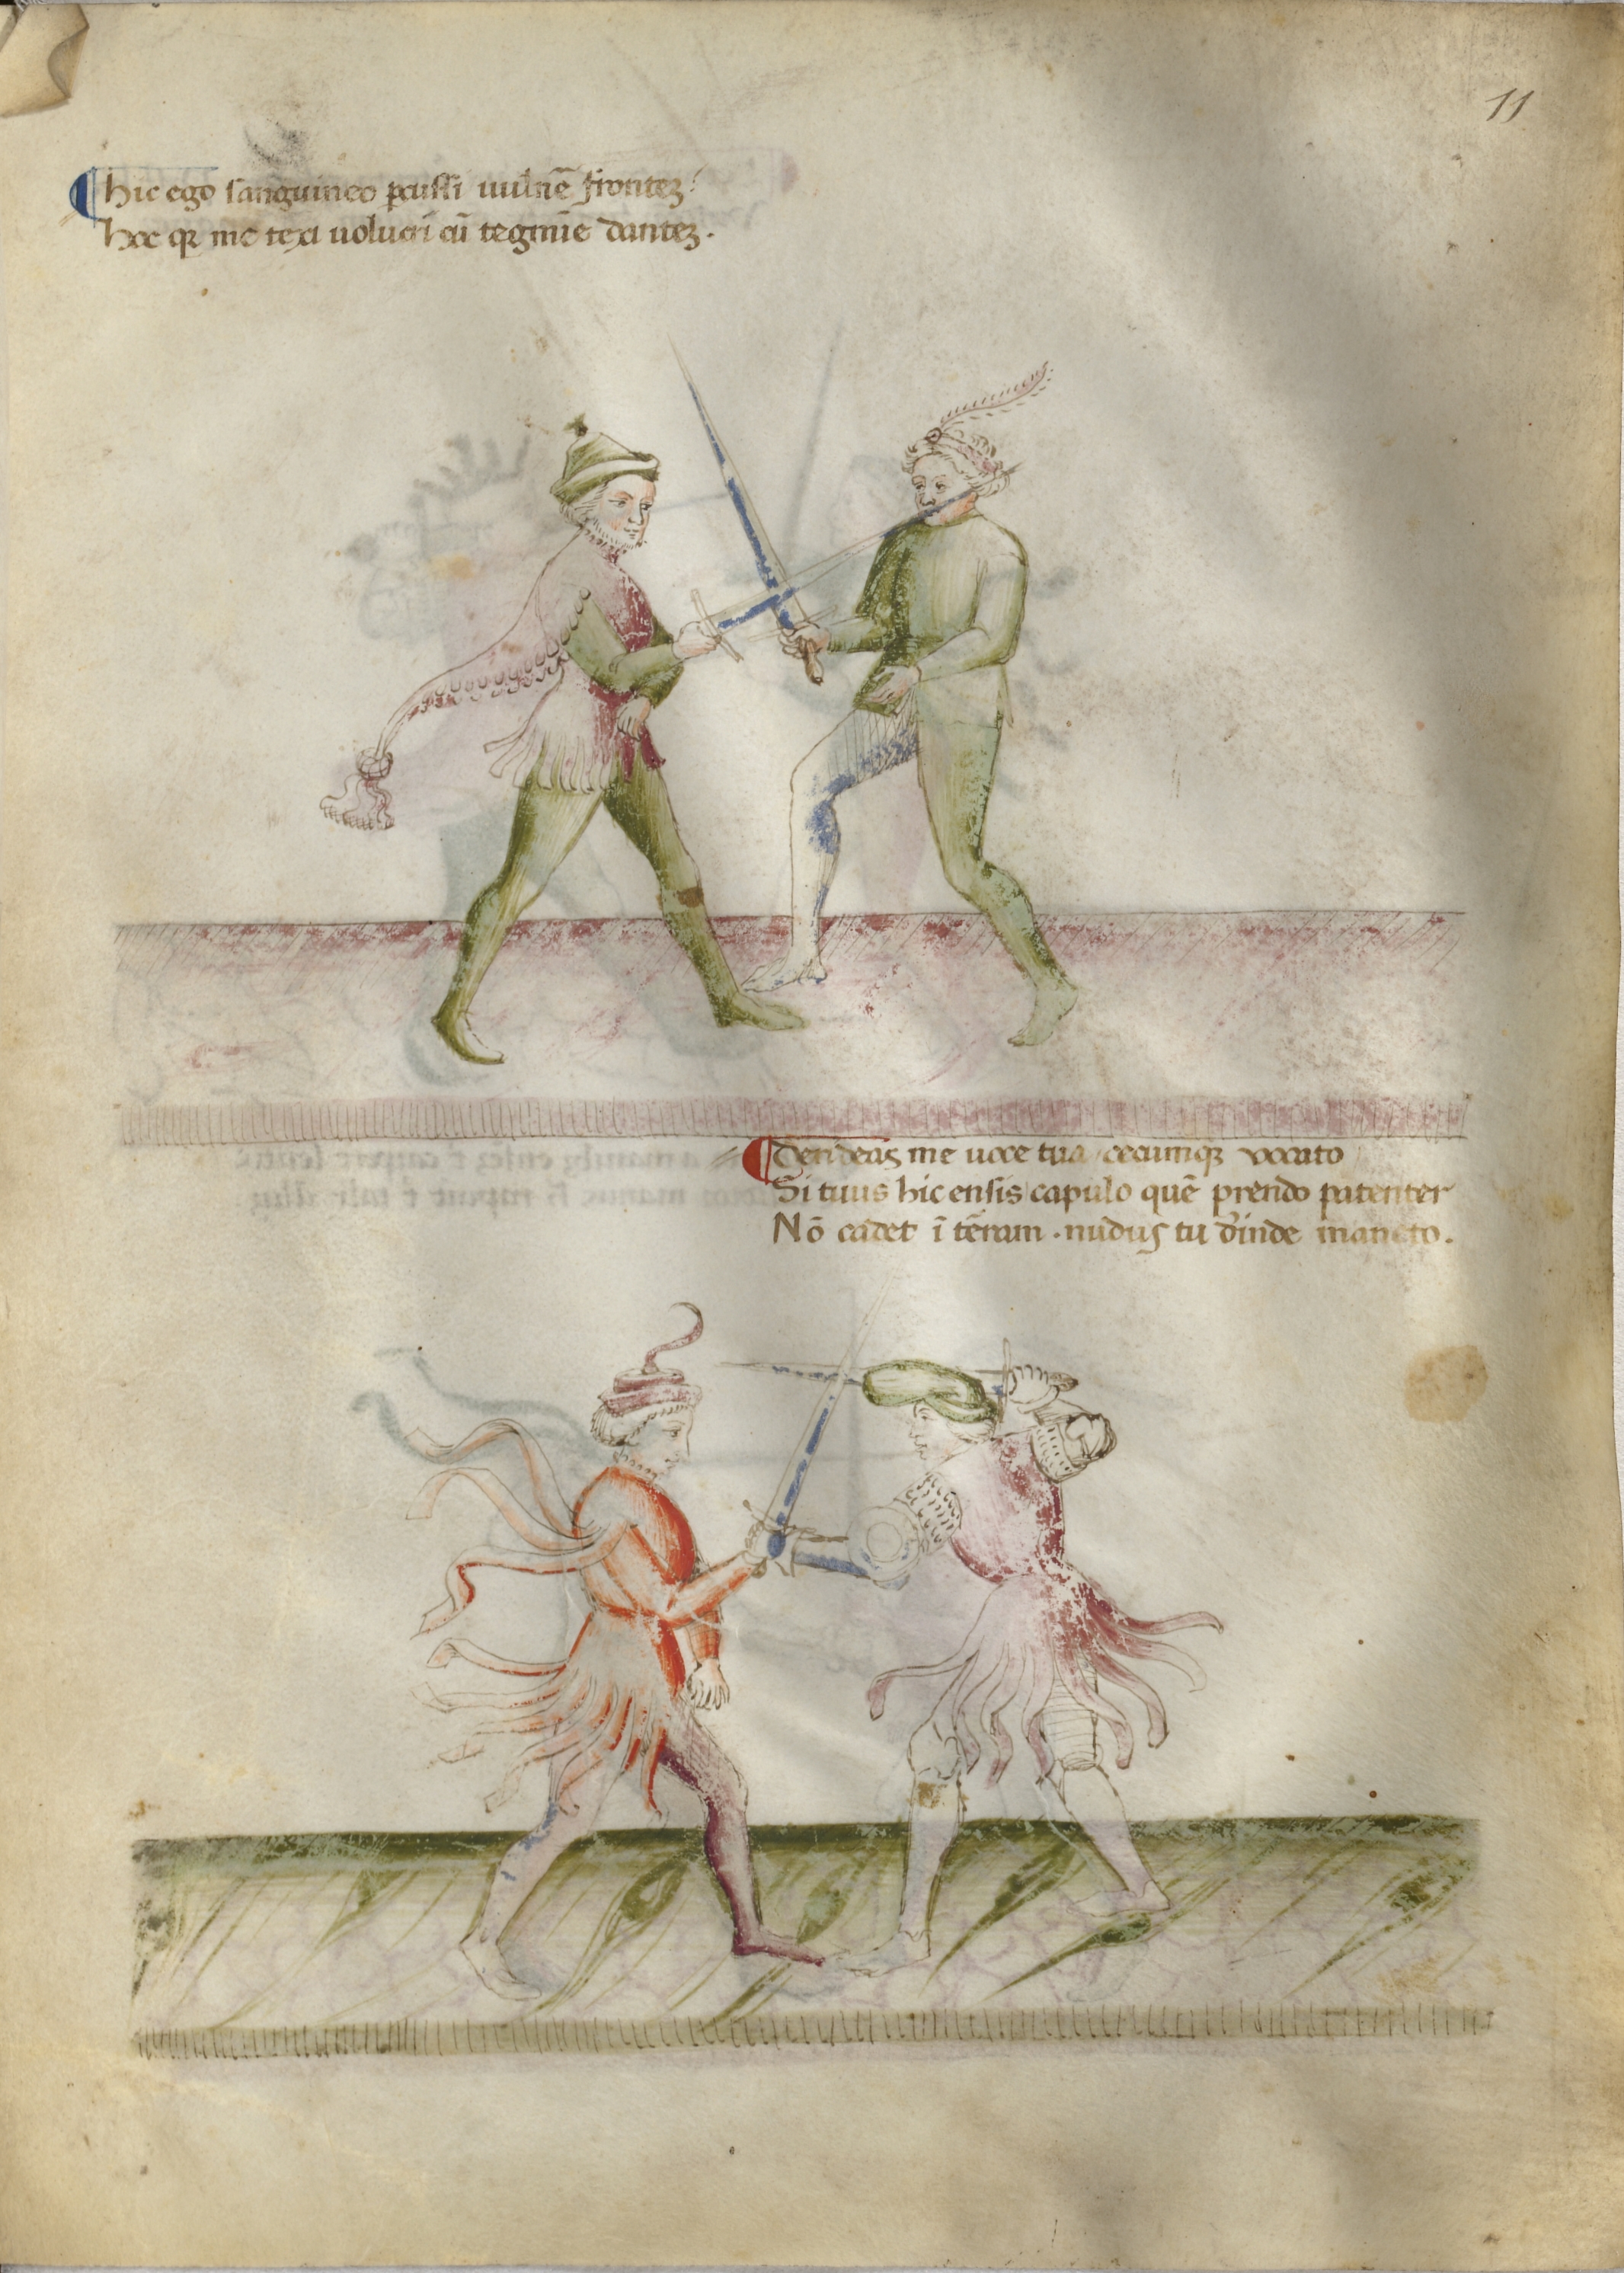 11
hic ego sanguineo ꝑcussi uulnē frontez /
hoc qꝫ me texi uolucri cū tegmīe dantez .
Derideas me uoce tua cecumqꝫ uocato
Si tuus hic ensis capulo quē prendo patenter
Nō cadet ī tēram . nudus tu d̄inde maneto .